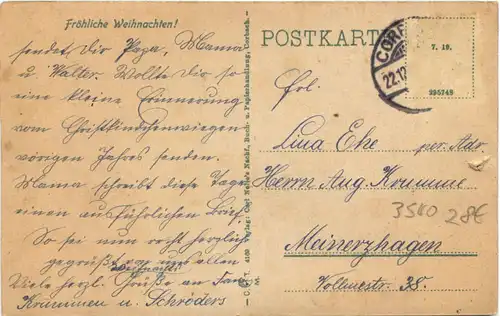 Fröhliche Weihnachten!
sendet Dir Papa, Mama
u. Walter. Wollte Dir so
eine kleine Erinnerung
vom Christkindchenwiegen
vorigen Jahres senden.
Mama schreibt diese Tage
einen ausführlichen Brief.
So sei nun recht herzlich
gegrüßt von uns allen
Viele herzl. Grüße an Fam.
Krummen u. Schröders
Verlag: Carl Nolte's Nachf., Buch- u. Papierhandlung, Corbach.
POSTKARTE
7. 19.
295749
COR
22.12
Frl.
Lina Ehe per Adr.
Herrn Aug. Krumme
3580 28€
Meinerzhagen
Vollmestr. 38.